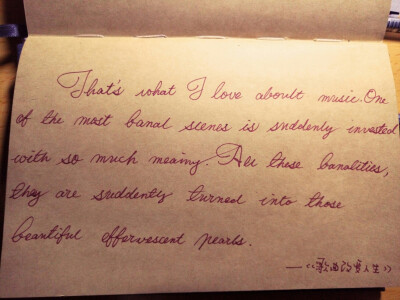 That's what I love aboult music. One
of the most banal scenes is suddenly invested
with so much meaing. All those banalities,
they are suddently turned into those
beautiful effervescent pearls.
——《歌曲改变人生》